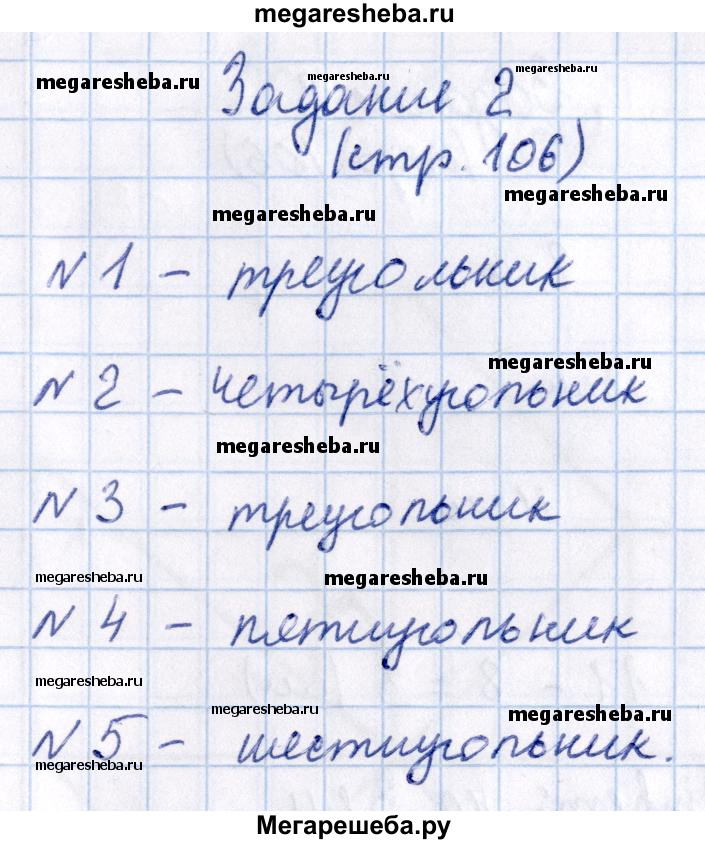 megaresheba.ru
megaresheba.ru
megaresheba.ru
megaresheba.ru
Задание 2
(стр. 106)
megaresheba.ru
megaresheba.ru
N 1 - треугольник
megaresheba.ru
N 2 - четырёхугольник
megaresheba.ru
N 3 - треугольник
megaresheba.ru
megaresheba.ru
N 4 - пятиугольник
megaresheba.ru
megaresheba.ru
megaresheba.ru
N 5 - шестиугольник.
megaresheba.ru
Мегарешеба.ру